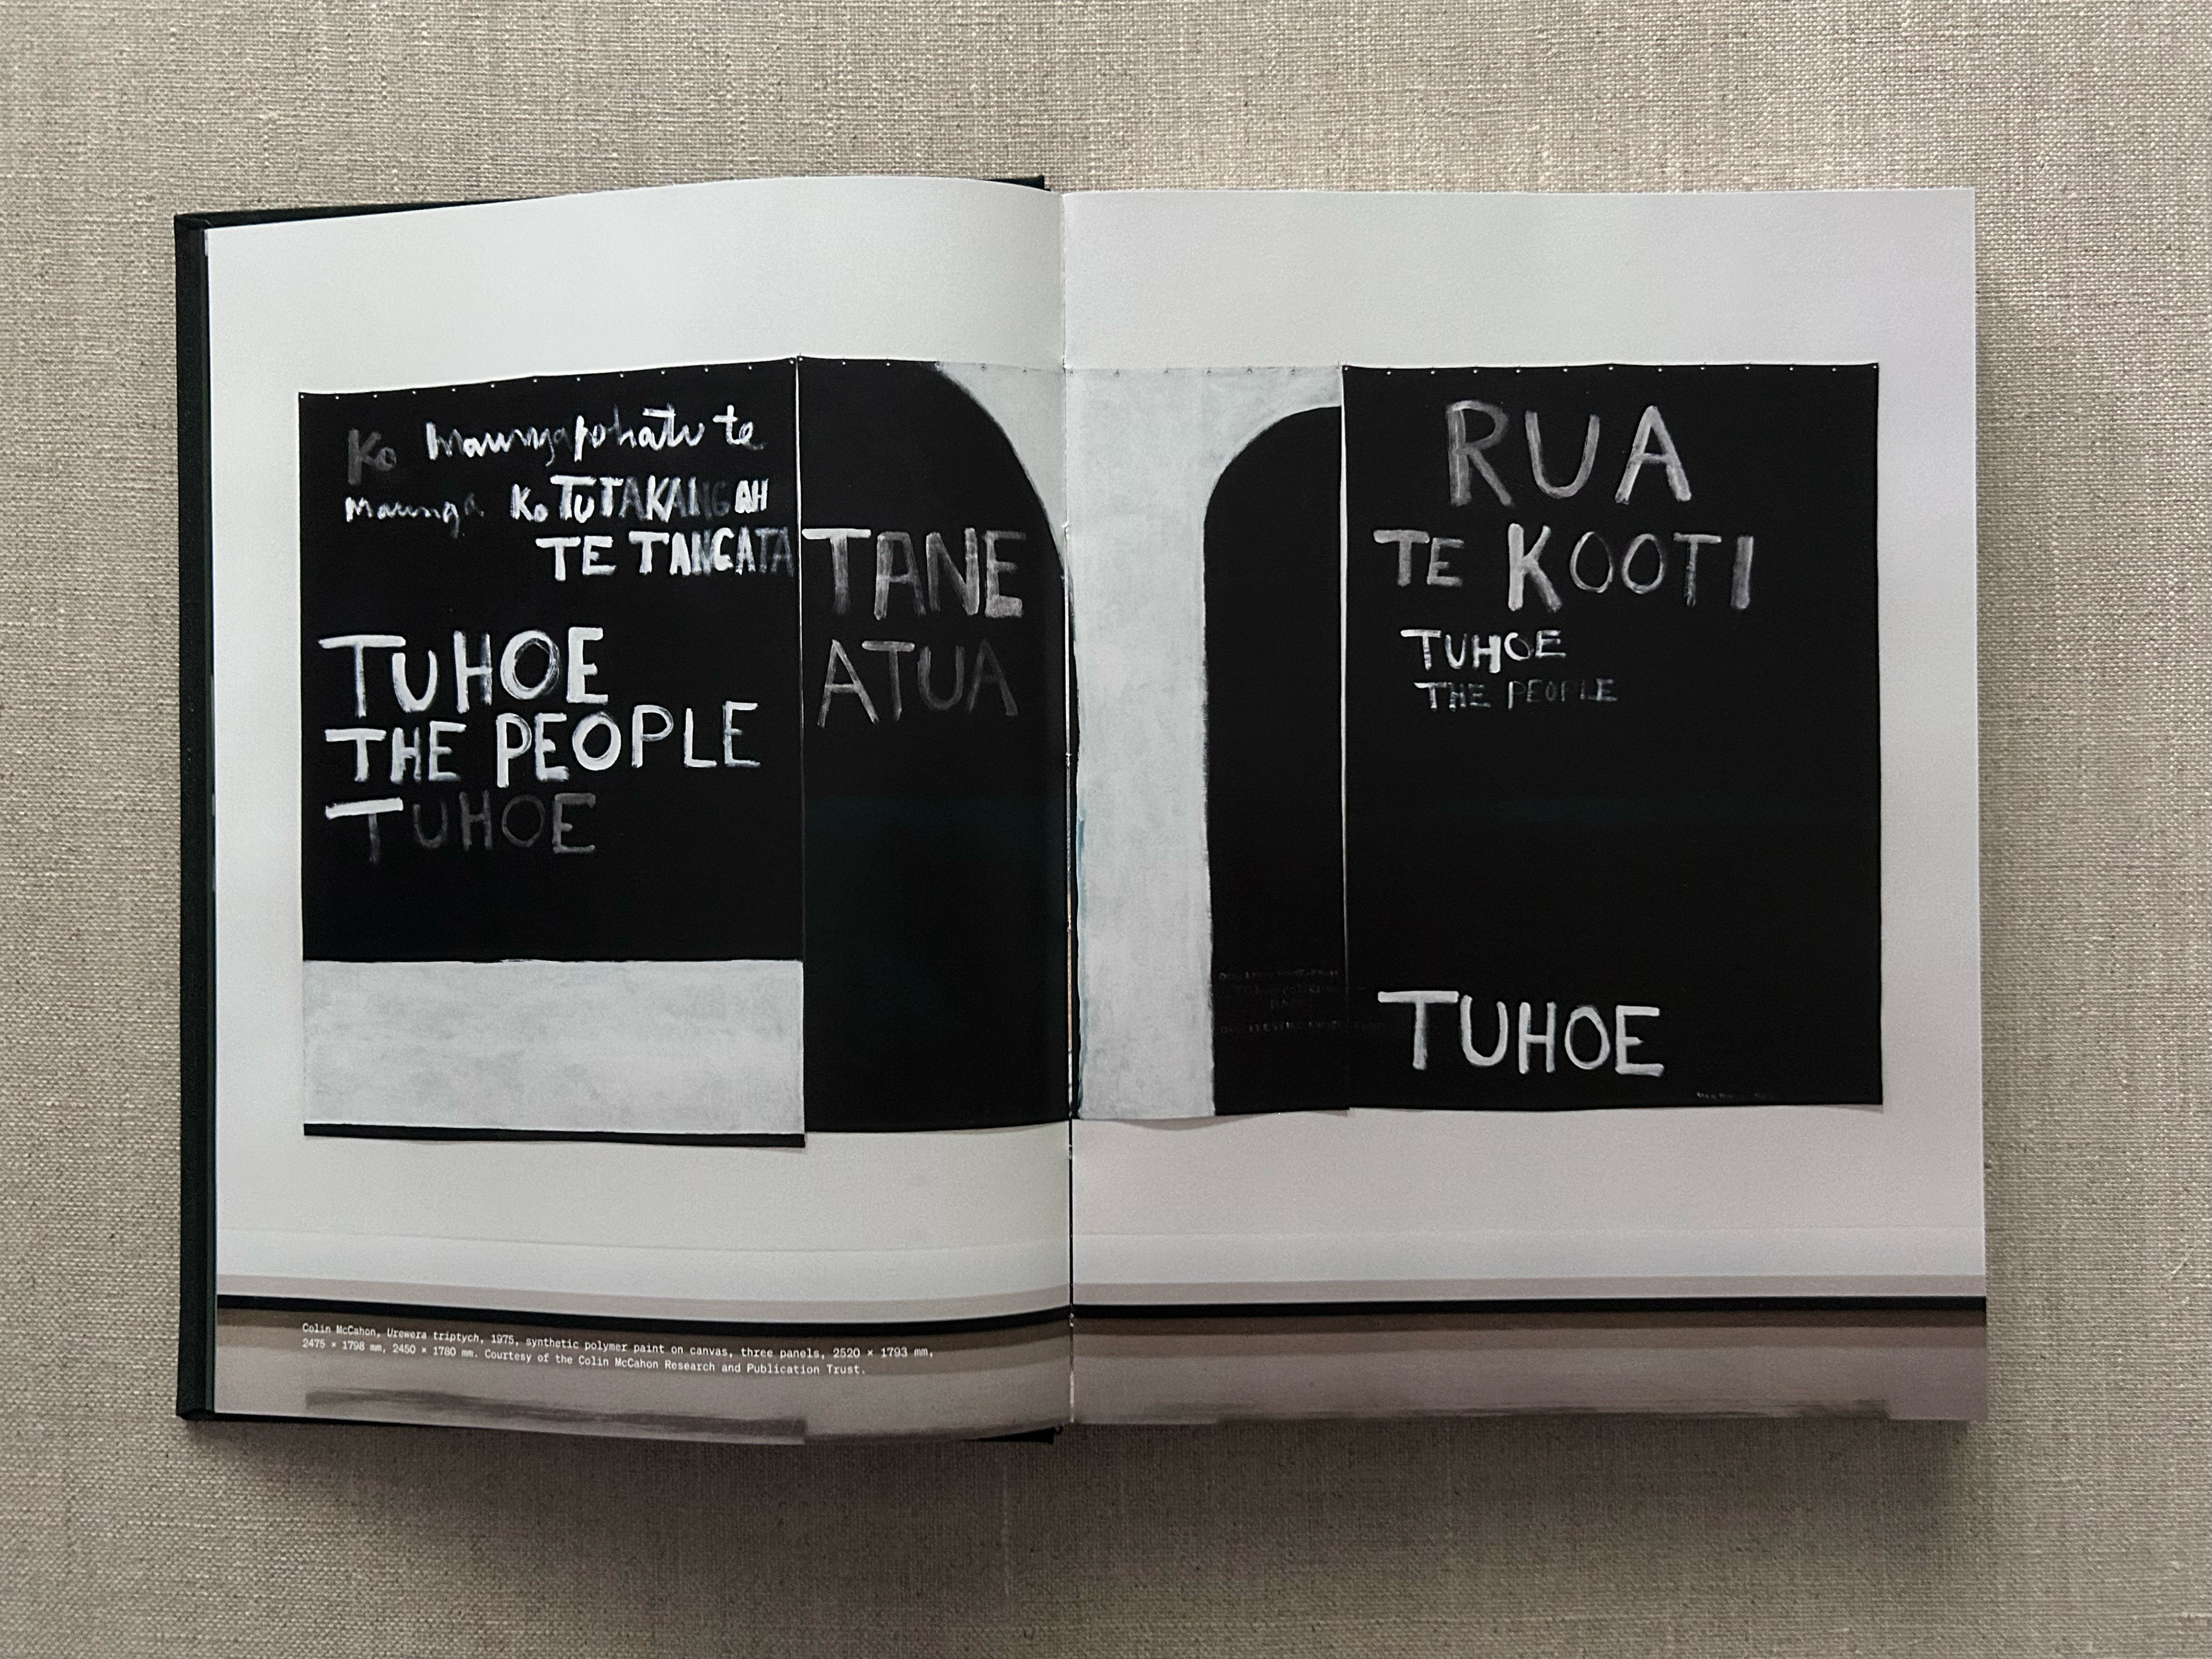 Ko Maungapohatu te
Maunga Ko TUTAKANGAH
TE TANGATA
TUHOE
THE PEOPLE
TUHOE
TANE
ATUA
RUA
TE KOOTI
TUHOE
THE PEOPLE
TUHOE
Colin McCahon, Urewera triptych, 1975, synthetic polymer paint on canvas, three panels, 2520 × 1793 mm,
2475 × 1798 mm, 2450 × 1780 mm. Courtesy of the Colin McCahon Research and Publication Trust.